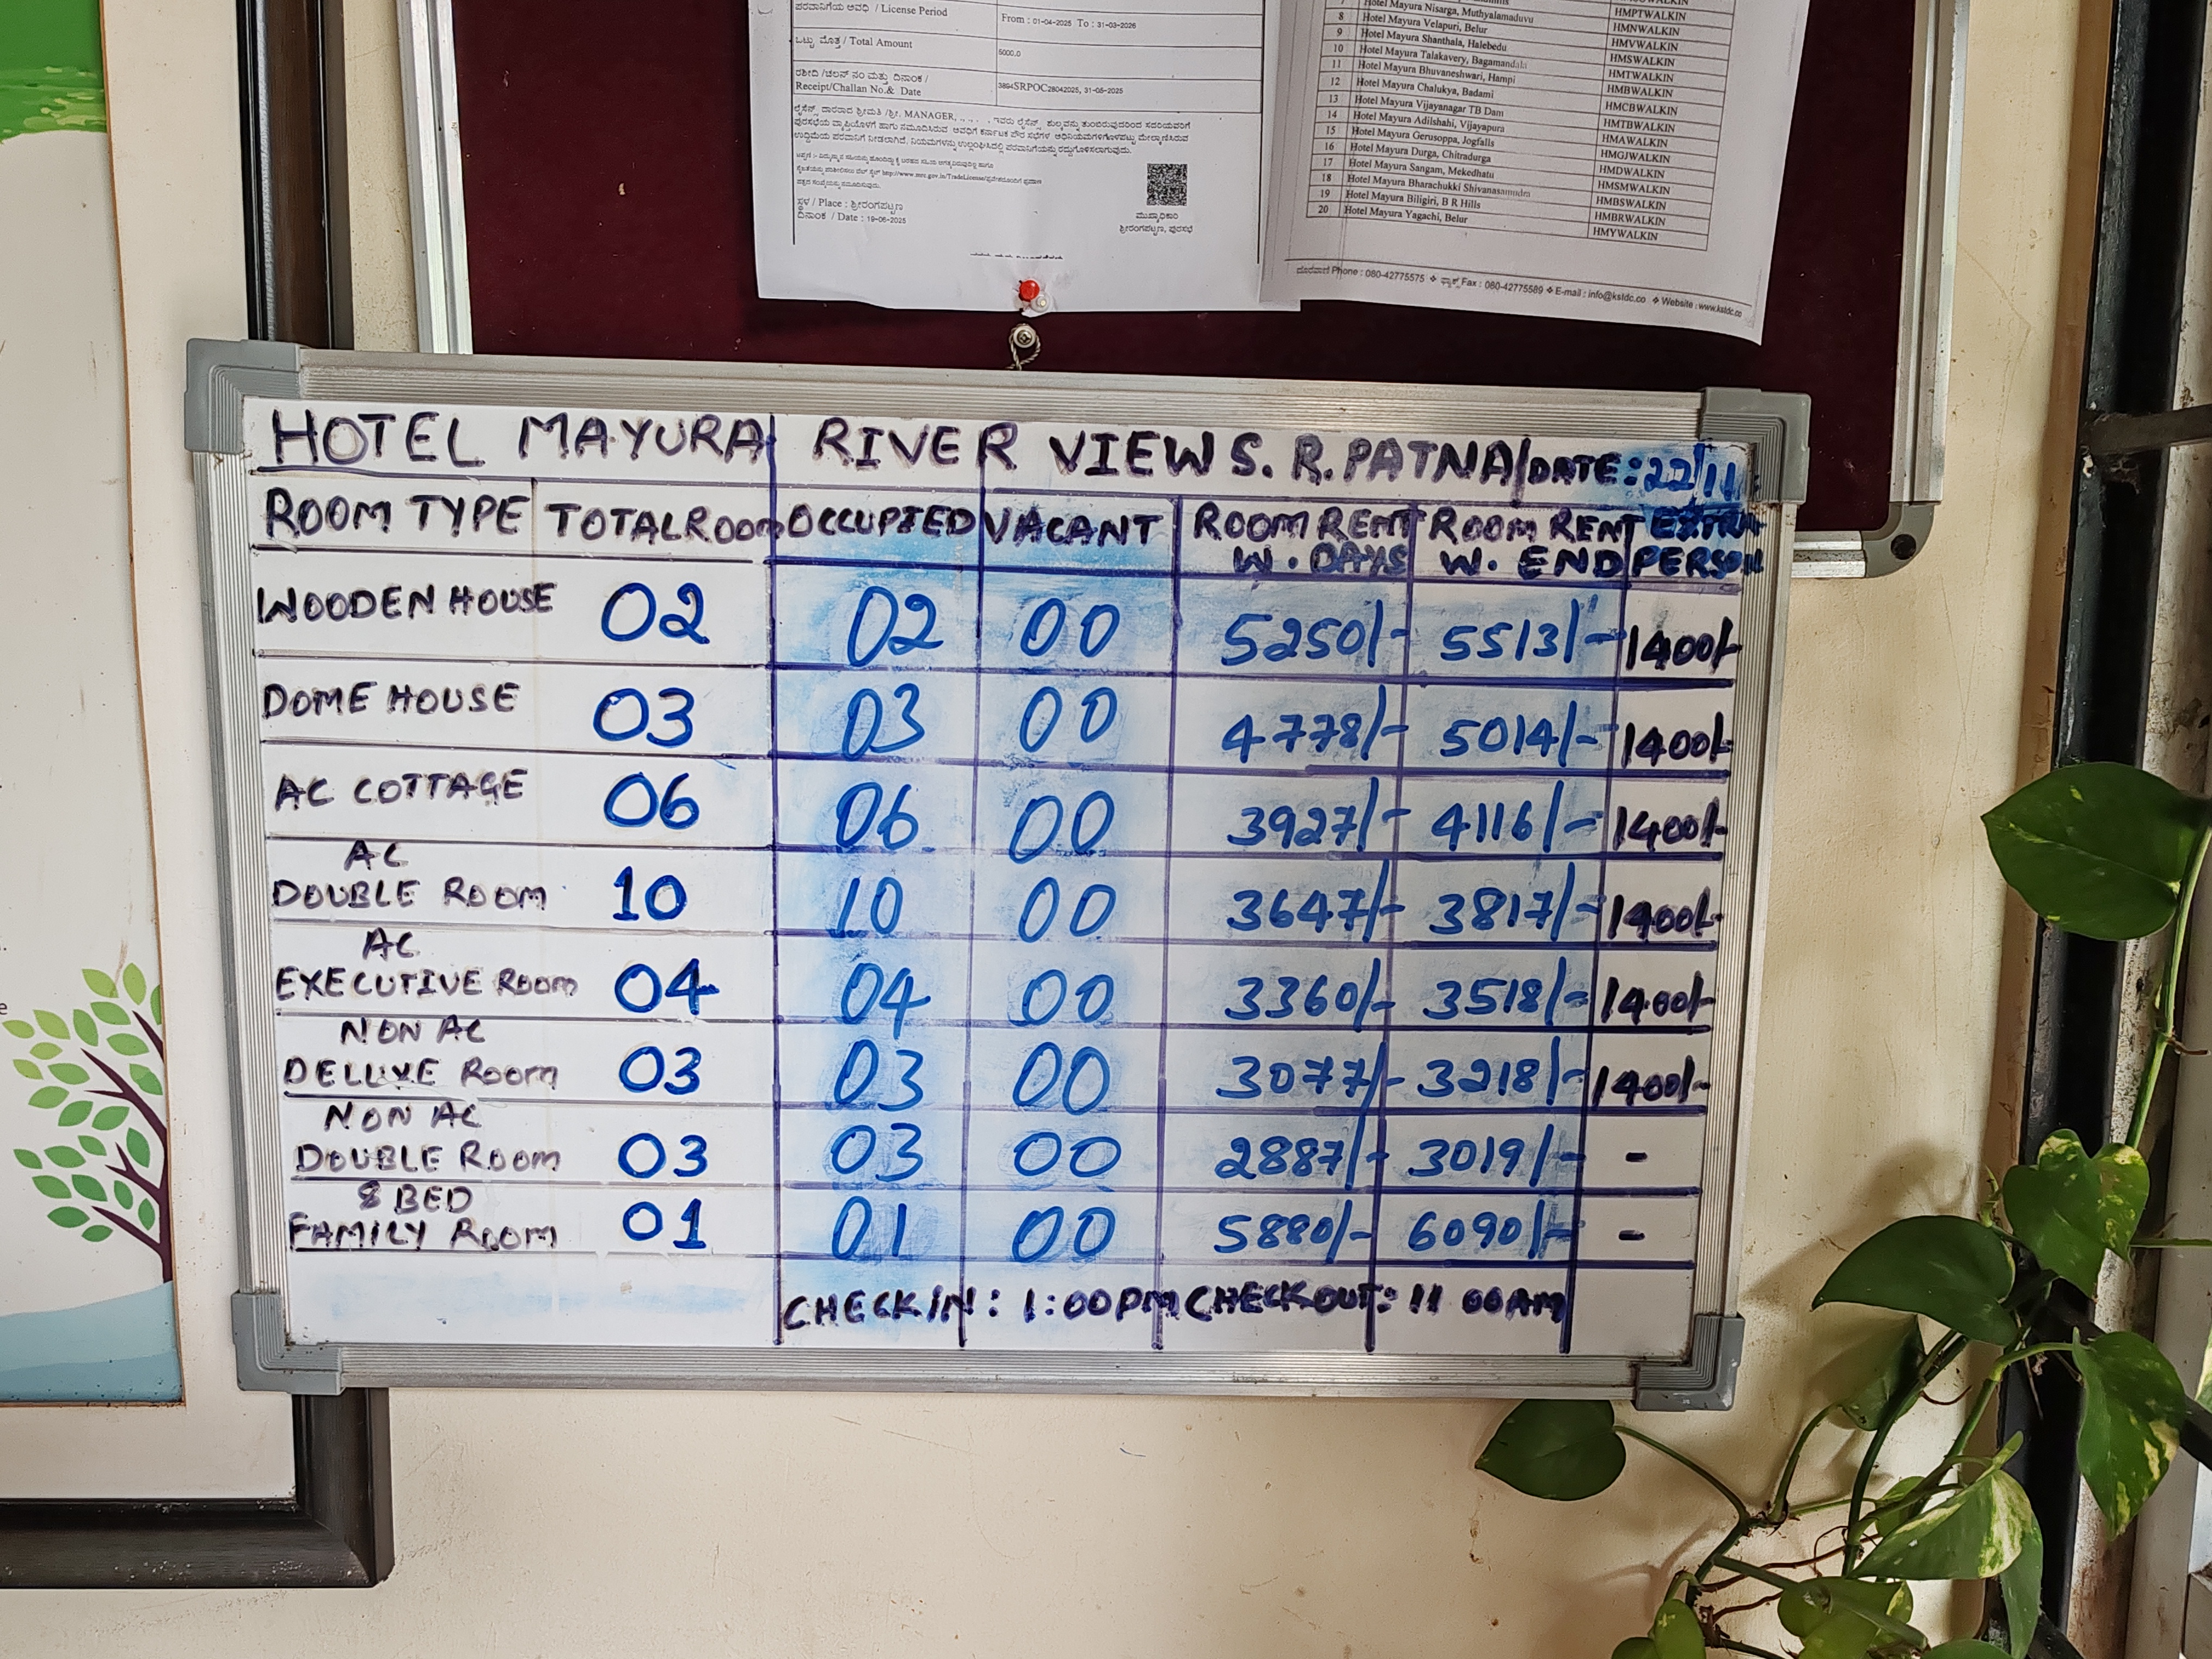 ಪರವಾನಿಗೆಯ ಅವಧಿ / License Period
From : 01-04-2025 To : 31-03-2026
ಒಟ್ಟು ಮೊತ್ತ / Total Amount
5000.0
ರಶೀದಿ /ಚಲನ್ ನಂ ಮತ್ತು ದಿನಾಂಕ /
Receipt/Challan No.& Date
3894SRPOC28042025, 31-05-2025
ಸ್ಥಳ / Place : ಶ್ರೀರಂಗಪಟ್ಟಣ
ದಿನಾಂಕ / Date : 19-06-2025
ಮುಖ್ಯಾಧಿಕಾರಿ
ಶ್ರೀರಂಗಪಟ್ಟಣ, ಪುರಸಭೆ
7 Hotel Mayura Nisarga, Muthyalamaduvu HMPTWALKIN
8 Hotel Mayura Velapuri, Belur HMNWALKIN
9 Hotel Mayura Shanthala, Halebedu HMVWALKIN
10 Hotel Mayura Talakavery, Bagamandala HMSWALKIN
11 Hotel Mayura Bhuvaneshwari, Hampi HMTWALKIN
12 Hotel Mayura Chalukya, Badami HMBWALKIN
13 Hotel Mayura Vijayanagar TB Dam HMCBWALKIN
14 Hotel Mayura Adilshahi, Vijayapura HMTBWALKIN
15 Hotel Mayura Gerusoppa, Jogfalls HMAWALKIN
16 Hotel Mayura Durga, Chitradurga HMGJWALKIN
17 Hotel Mayura Sangam, Mekedhatu HMDWALKIN
18 Hotel Mayura Bharachukki Shivanasamudra HMSMWALKIN
19 Hotel Mayura Biligiri, B R Hills HMBSWALKIN
20 Hotel Mayura Yagachi, Belur HMBRWALKIN
HMYWALKIN
ದೂರವಾಣಿ Phone : 080-42775575 ❖ ಫ್ಯಾಕ್ಸ್ Fax : 080-42775589 ❖ E-mail : info@kstdc.co ❖ Website : www.kstdc.co
HOTEL MAYURA RIVER VIEW S. R. PATNA DATE: 22/11
ROOM TYPE TOTAL ROOM OCCUPIED VACANT ROOM RENT W. DAYS ROOM RENT W. END EXTRA PERSON
WOODEN HOUSE 02 02 00 5250/- 5513/- 1400/-
DOME HOUSE 03 03 00 4778/- 5014/- 1400/-
AC COTTAGE 06 06 00 3927/- 4116/- 1400/-
AC
DOUBLE ROOM 10 10 00 3647/- 3817/- 1400/-
AC
EXECUTIVE ROOM 04 04 00 3360/- 3518/- 1400/-
NON AC
DELUXE ROOM 03 03 00 3077/- 3218/- 1400/-
NON AC
DOUBLE ROOM 03 03 00 2887/- 3019/- -
8 BED
FAMILY ROOM 01 01 00 5880/- 6090/- -
CHECK IN: 1:00PM CHECK OUT: 11 00AM